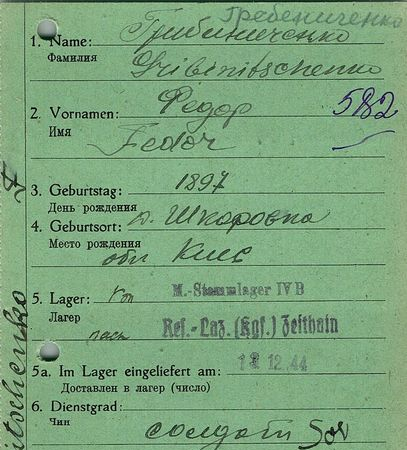 Гребениченко
1. Name: Грибениченко
Фамилия
Gribenitschenko
2. Vornamen: Федор
582
Имя
Fedor
3. Geburtstag: 1897
День рождения
4. Geburtsort: д. Шкаровка
Место рождения
обл Киев
5. Lager: Von M.-Stammlager IV B
Лагер
nach Res.-Laz. (Kgf.) Zeithain
5a. Im Lager eingeliefert am: 12 12. 44
Доставлен в лагер (число)
6. Dienstgrad:
Чин
солдат Sol
itschenko F